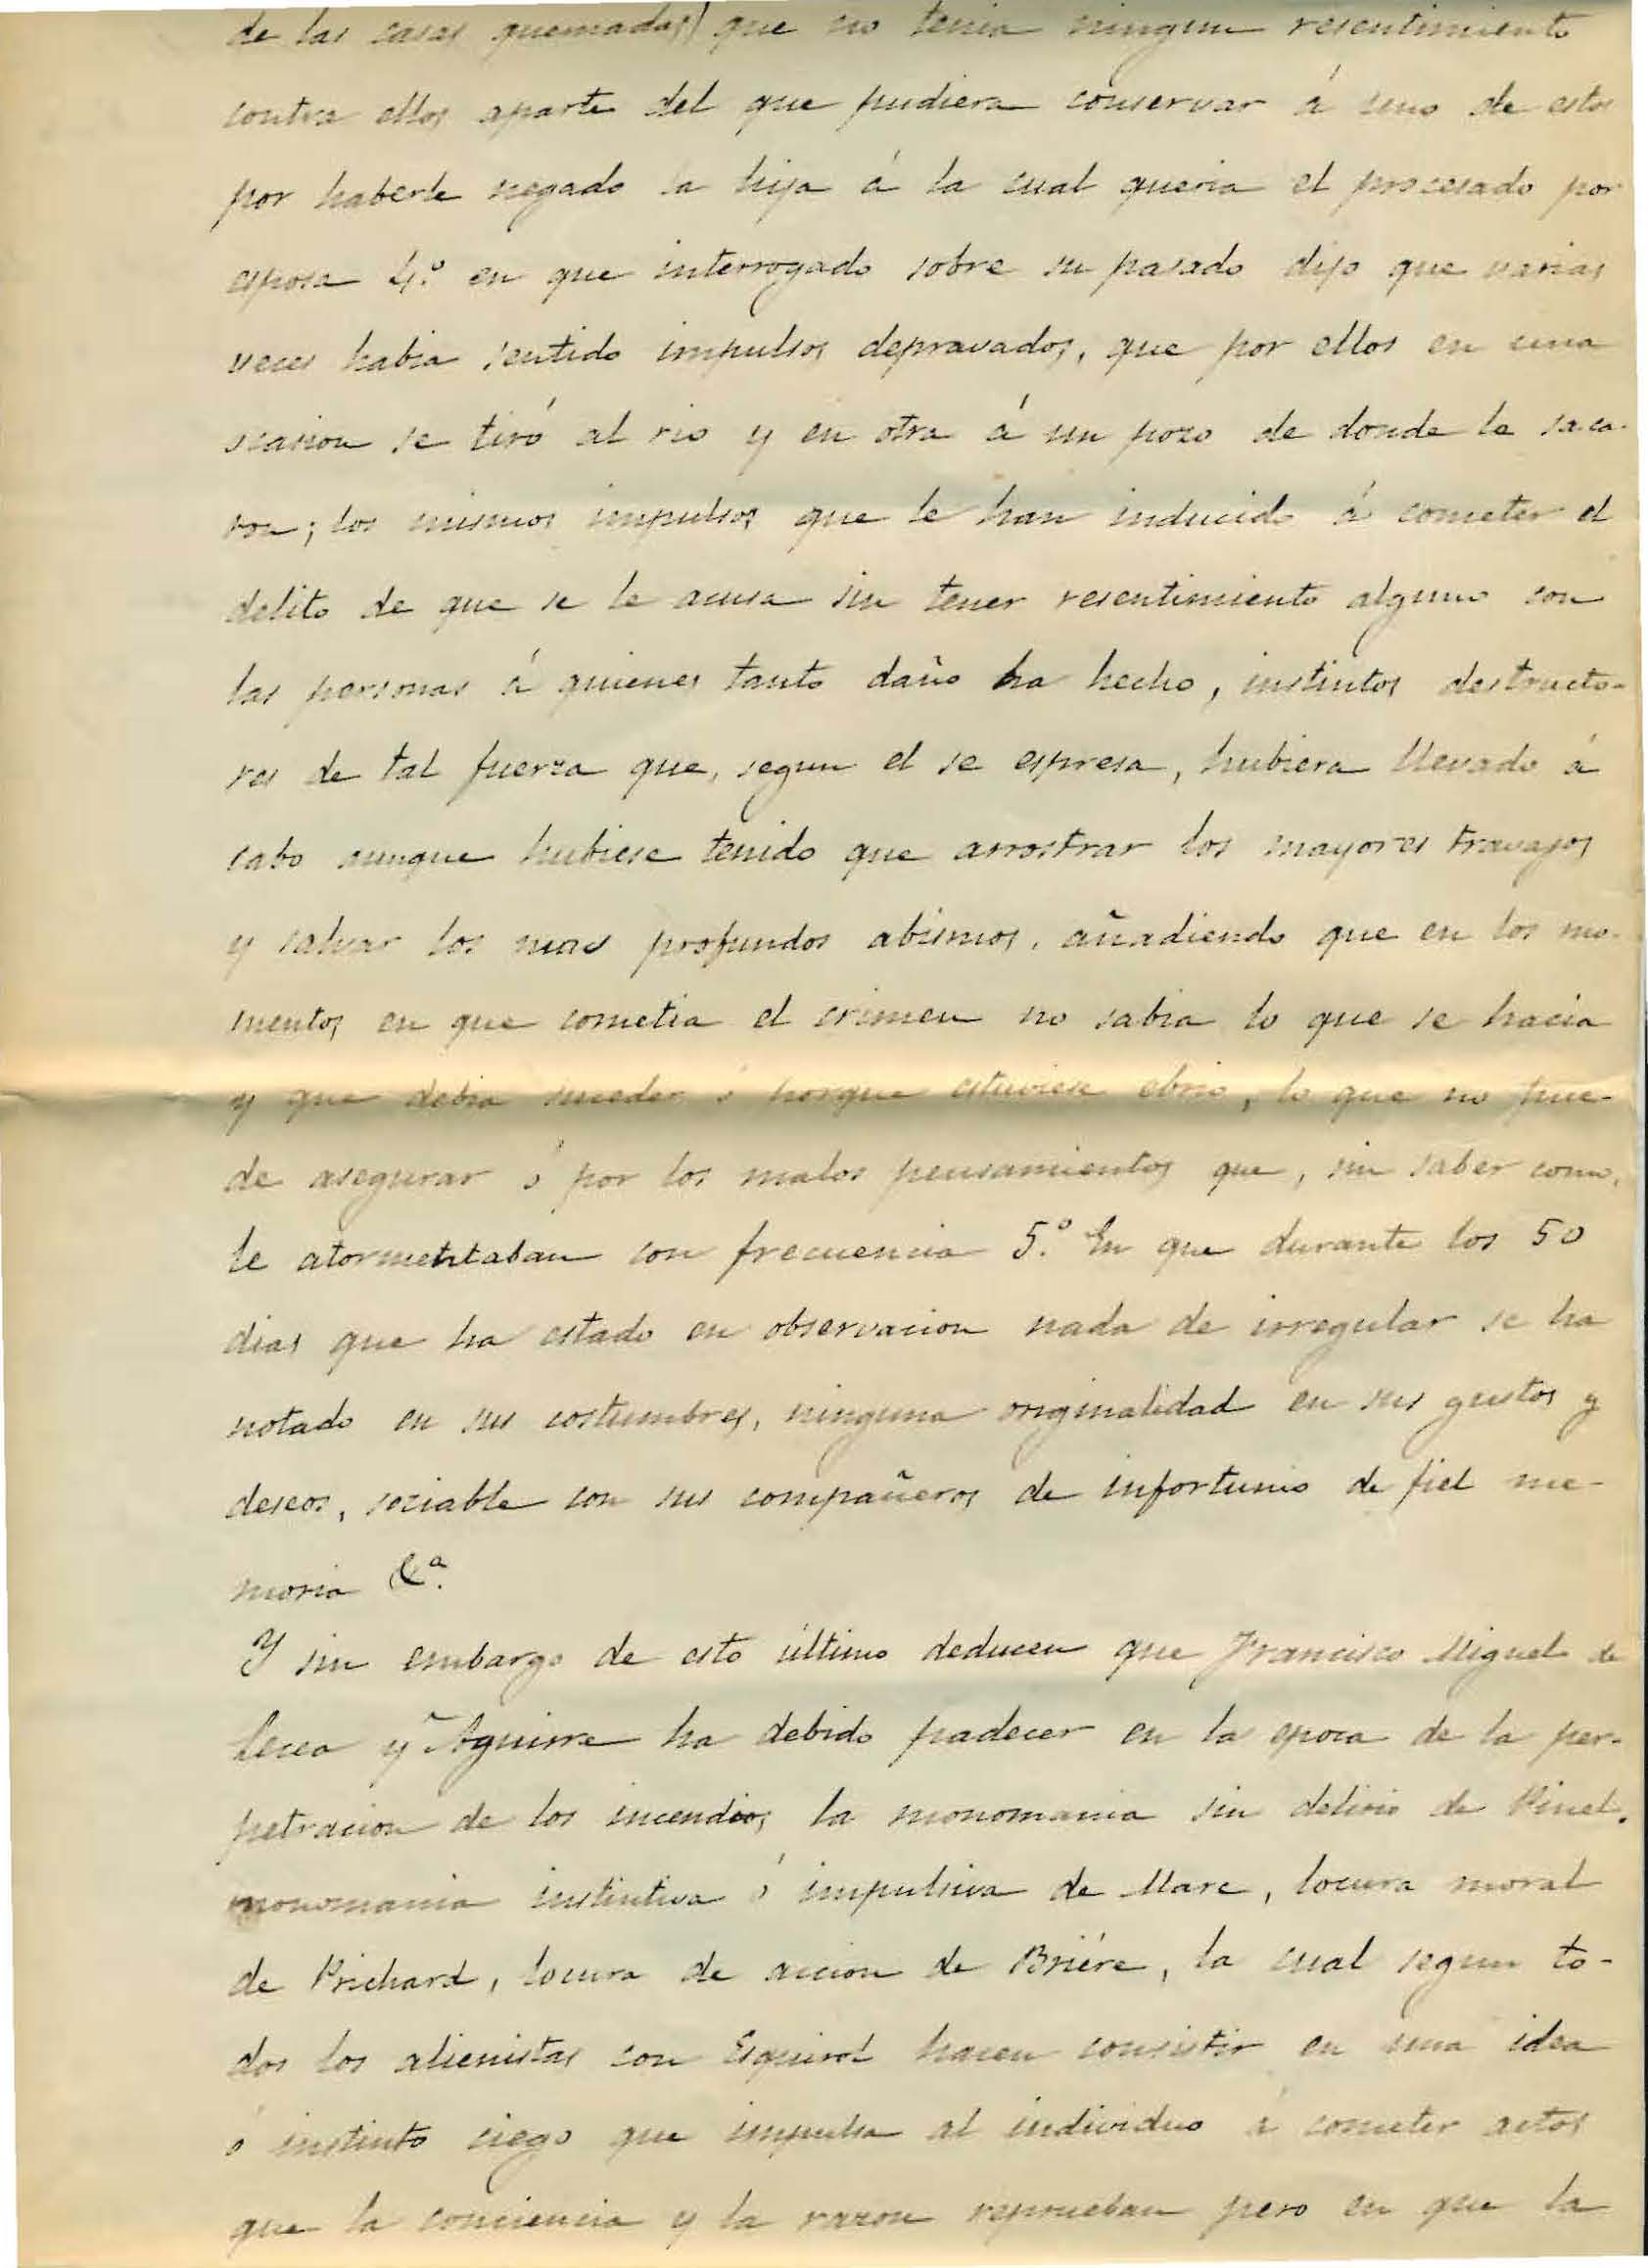 de las casas quemadas) que no tenia ningun resentimiento
contra ellos aparte del que pudiera conservar á uno de estos
por haberle negado la hija á la cual queria el procesado por
esposa 4.º en que interrogado sobre su pasado dijo que varias
veces habia sentido impulsos depravados, que por ellos en una
ocasion se tiró al rio y en otra á un pozo de donde le saca-
ron; los mismos impulsos que le han inducido á cometer el
delito de que se le acusa sin tener resentimiento alguno con
las personas á quienes tanto daño ha hecho, instintos destructo-
res de tal fuerza que, segun el se espresa, hubiera llevado á
cabo aunque hubiese tenido que arrostrar los mayores travajos
y salvar los mas profundos abismos, añadiendo que en los mo-
mentos en que cometia el crimen no sabia lo que se hacia
y que debia suceder ó porque estuviese ebrio, lo que no pue-
de asegurar ó por los malos pensamientos que, sin saber como,
le atormentaban con frecuencia 5.º En que durante los 50
dias que ha estado en observacion nada de irregular se ha
notado en sus costumbres, ninguna originalidad en sus gustos y
deseos, sociable con sus compañeros de infortunio de fiel me-
moria &ª.
Y sin embargo de esto último deducen que Francisco Miguel de
Lecea y Aguirre ha debido padecer en la epoca de la per-
petracion de los incendios, la monomania sin delirio de Pinel,
monomania instintiva ó impulsiva de Marc, locura moral
de Prichard, locura de accion de Briére, la cual segun to-
dos los alienistas con Esquirol hacen consistir en una idea
ó instinto ciego que impulsa al individuo á cometer actos
que la conciencia y la razon reprueban pero en que la